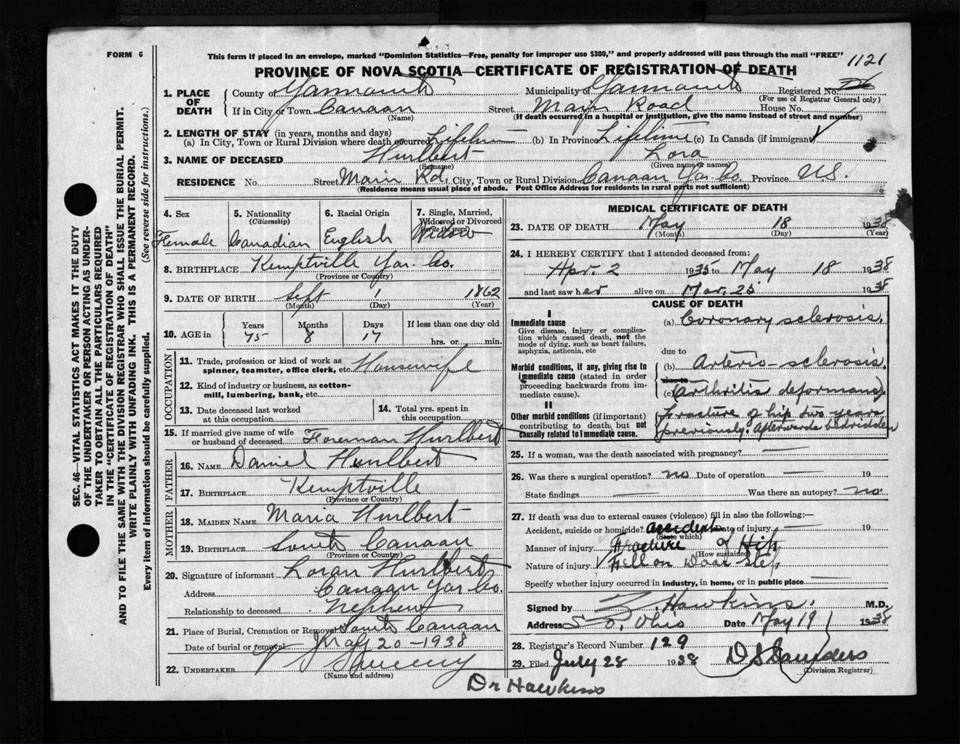 FORM 6
This form if placed in an envelope, marked "Dominion Statistics—Free, penalty for improper use $300," and properly addressed will pass through the mail "FREE"
1121
PROVINCE OF NOVA SCOTIA—CERTIFICATE OF REGISTRATION OF DEATH
1. PLACE OF DEATH County of Yarmouth Municipality of Yarmouth Registered No.
(For use of Registrar General only)
If in City or Town Canaan Street Main Road House No.
(Name) (If death occurred in a hospital or institution, give the name instead of street and number)
2. LENGTH OF STAY (in years, months and days)
(a) In City, Town or Rural Division where death occurred Lifetime (b) In Province Lifetime (c) In Canada (if immigrant)
3. NAME OF DECEASED Hurlbert Lora
(Surname) (Given name or names)
RESIDENCE No. Street Main Rd. City, Town or Rural Division Canaan Yar. Co. Province N.S.
(Residence means usual place of abode. Post Office Address for residents in rural parts not sufficient)
4. Sex Female
5. Nationality (Citizenship) Canadian
6. Racial Origin English
7. Single, Married, Widowed or Divorced (write the word) Widow
8. BIRTHPLACE Kemptville Yar. Co.
(Province or Country)
9. DATE OF BIRTH Sept 1 1862
(Month) (Day) (Year)
10. AGE in Years Months Days If less than one day old
75 8 17 hrs. or min.
OCCUPATION
11. Trade, profession or kind of work as spinner, teamster, office clerk, etc. Housewife
12. Kind of industry or business, as cotton-mill, lumbering, bank, etc.
13. Date deceased last worked at this occupation
14. Total yrs. spent in this occupation
15. If married give name of wife or husband of deceased Foreman Hurlbert
FATHER
16. NAME Daniel Hurlbert
17. BIRTHPLACE Kemptville
(Province or Country)
MOTHER
18. MAIDEN NAME Maria Hurlbert
19. BIRTHPLACE South Canaan
(Province or Country)
20. Signature of informant Loran Hurlbert
Address Canaan Yar Co.
Relationship to deceased Nephew
21. Place of Burial, Cremation or Removal South Canaan
Date of burial or removal May 20 - 1938
22. UNDERTAKER V S Sweeny
(Name and address)
MEDICAL CERTIFICATE OF DEATH
23. DATE OF DEATH May 18 1938
(Month) (Day) (Year)
24. I HEREBY CERTIFY that I attended deceased from:
Apr. 2 1935 to May 18 1938
and last saw her alive on Mar. 25 1938
CAUSE OF DEATH
I
Immediate cause (a) Coronary sclerosis.
Give disease, injury or complication which caused death, not the mode of dying, such as heart failure, asphyxia, asthenia, etc
due to
Morbid conditions, if any, giving rise to immediate cause (stated in order proceeding backwards from immediate cause). (b) Arterio-sclerosis.
(c) Arthritis deformans.
II
Other morbid conditions (if important) contributing to death, but not causally related to immediate cause.
Fracture of hip two years
previously. Afterwards bedridden
25. If a woman, was the death associated with pregnancy? —
26. Was there a surgical operation? no Date of operation — 19
State findings — Was there an autopsy? no
27. If death was due to external causes (violence) fill in also the following:
Accident, suicide or homicide? accident Date of injury — 19
(State which)
Manner of injury Fracture of Hip
(How sustained)
Nature of injury Fell on Door Step
Specify whether injury occurred in industry, in home, or in public place —
Signed by Z. Hawkins. M.D.
Address So. Ohio Date May 19 1938
28. Registrar's Record Number 129
29. Filed July 28 1938 D S Saunders
(Division Registrar)
Dr Hawkins
SEC. 46—VITAL STATISTICS ACT MAKES IT THE DUTY
OF THE UNDERTAKER OR PERSON ACTING AS UNDER-
TAKER TO OBTAIN ALL THE PARTICULARS REQUIRED
IN THE "CERTIFICATE OF REGISTRATION OF DEATH"
AND TO FILE THE SAME WITH THE DIVISION REGISTRAR WHO SHALL ISSUE THE BURIAL PERMIT.
WRITE PLAINLY WITH UNFADING INK. THIS IS A PERMANENT RECORD.
Every item of information should be carefully supplied. (See reverse side for instructions.)